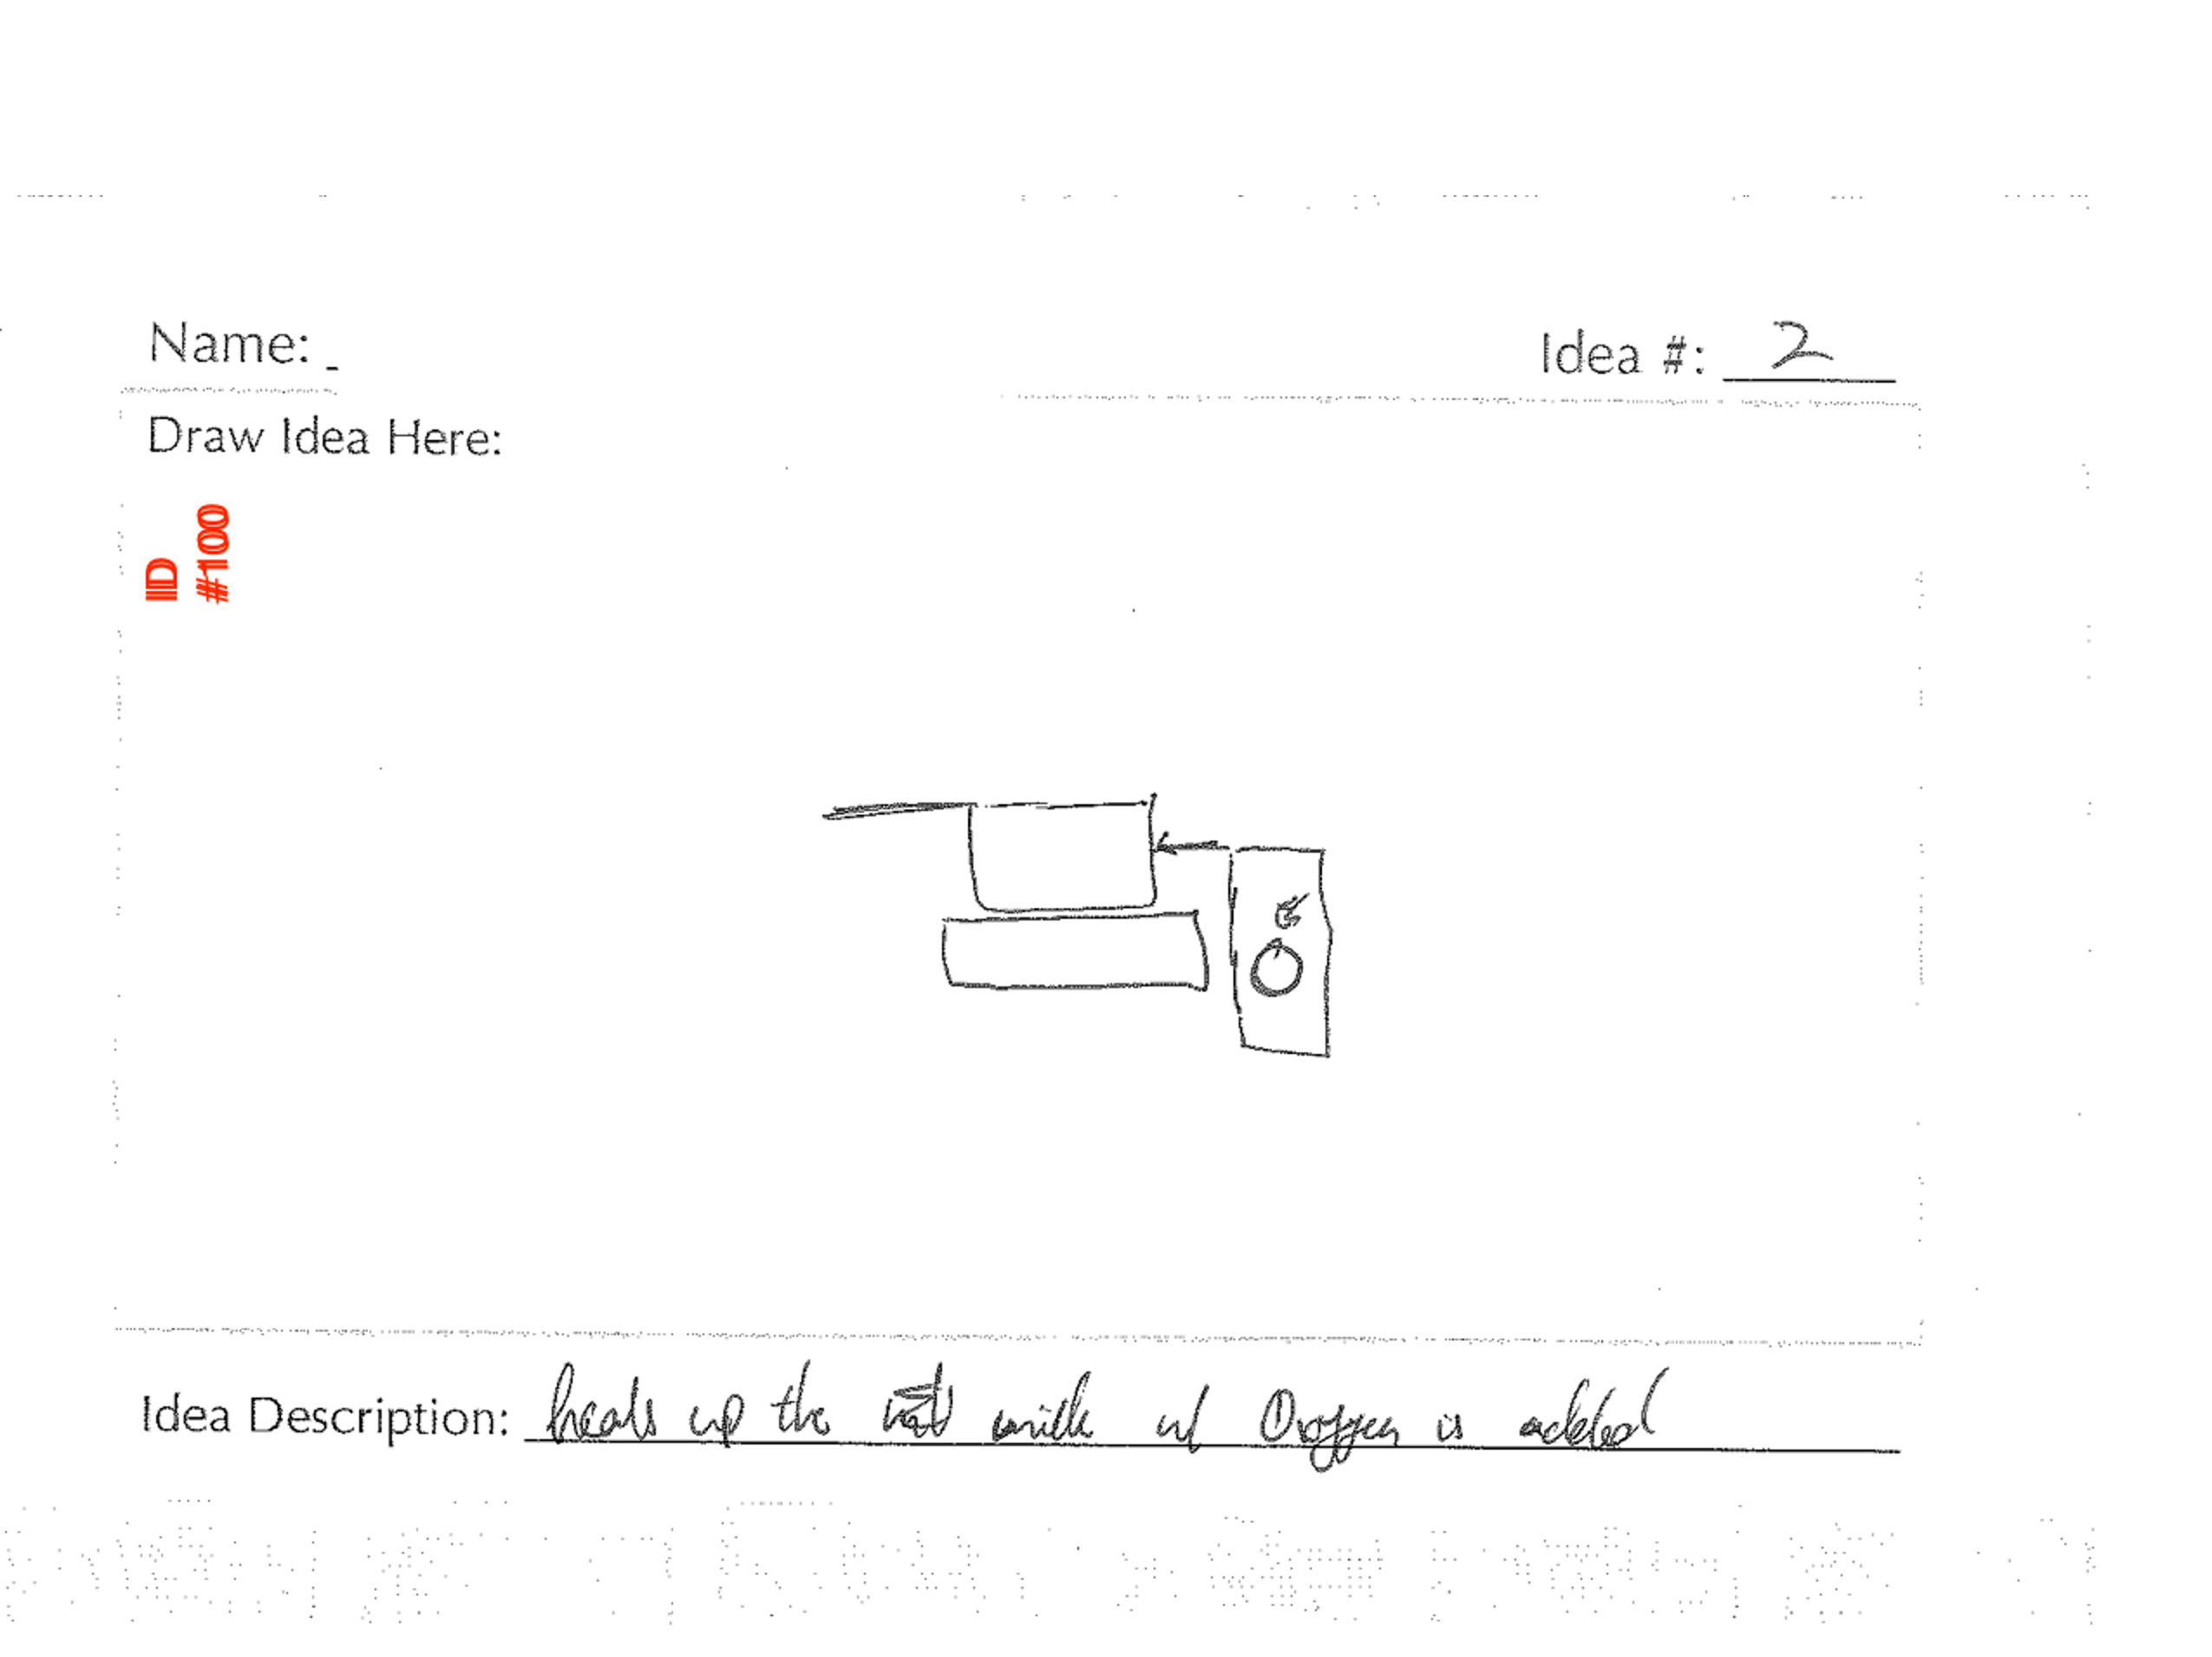 Name:
Idea #: 2
Draw Idea Here:
ID
#100
Idea Description: heats up the milk w/ Oxygen is added